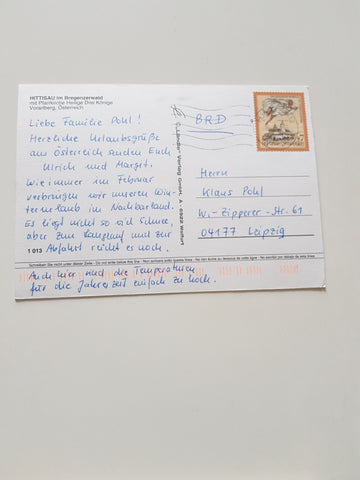 HITTISAU im Bregenzerwald
mit Pfarrkirche Heilige Drei Könige
Vorarlberg, Österreich
Liebe Familie Pohl!
Herzliche Urlaubsgrüße
aus Österreich senden Euch
Ulrich und Margit.
Wie immer im Februar
verbringen wir unseren Win-
terurlaub im Nachbarland.
Es liegt nicht so viel Schnee,
aber zum Langlauf und zur
Abfahrt reicht es noch.
1 013
Schreiben Sie nicht unter dieser Zeile - Do not write below this line - Non scrivere sotto questa linea - Ne rien écrire au dessous de cette ligne - No escribir por debajo de esta línea
Auch hier sind die Temperaturen
für die Jahreszeit einfach zu hoch.
Verlag GmBH, A-6922 Wolfurt
BRD
Herrn
Klaus Pohl
W.-Zipperer-Str. 61
04177 Leipzig